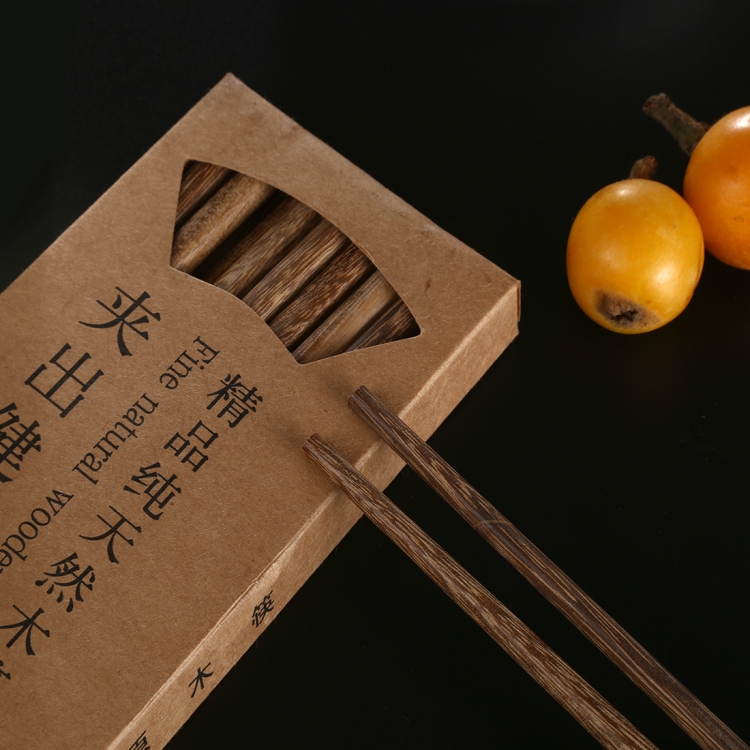 夹出健
Fine natural woode
精品纯天然木
木筷